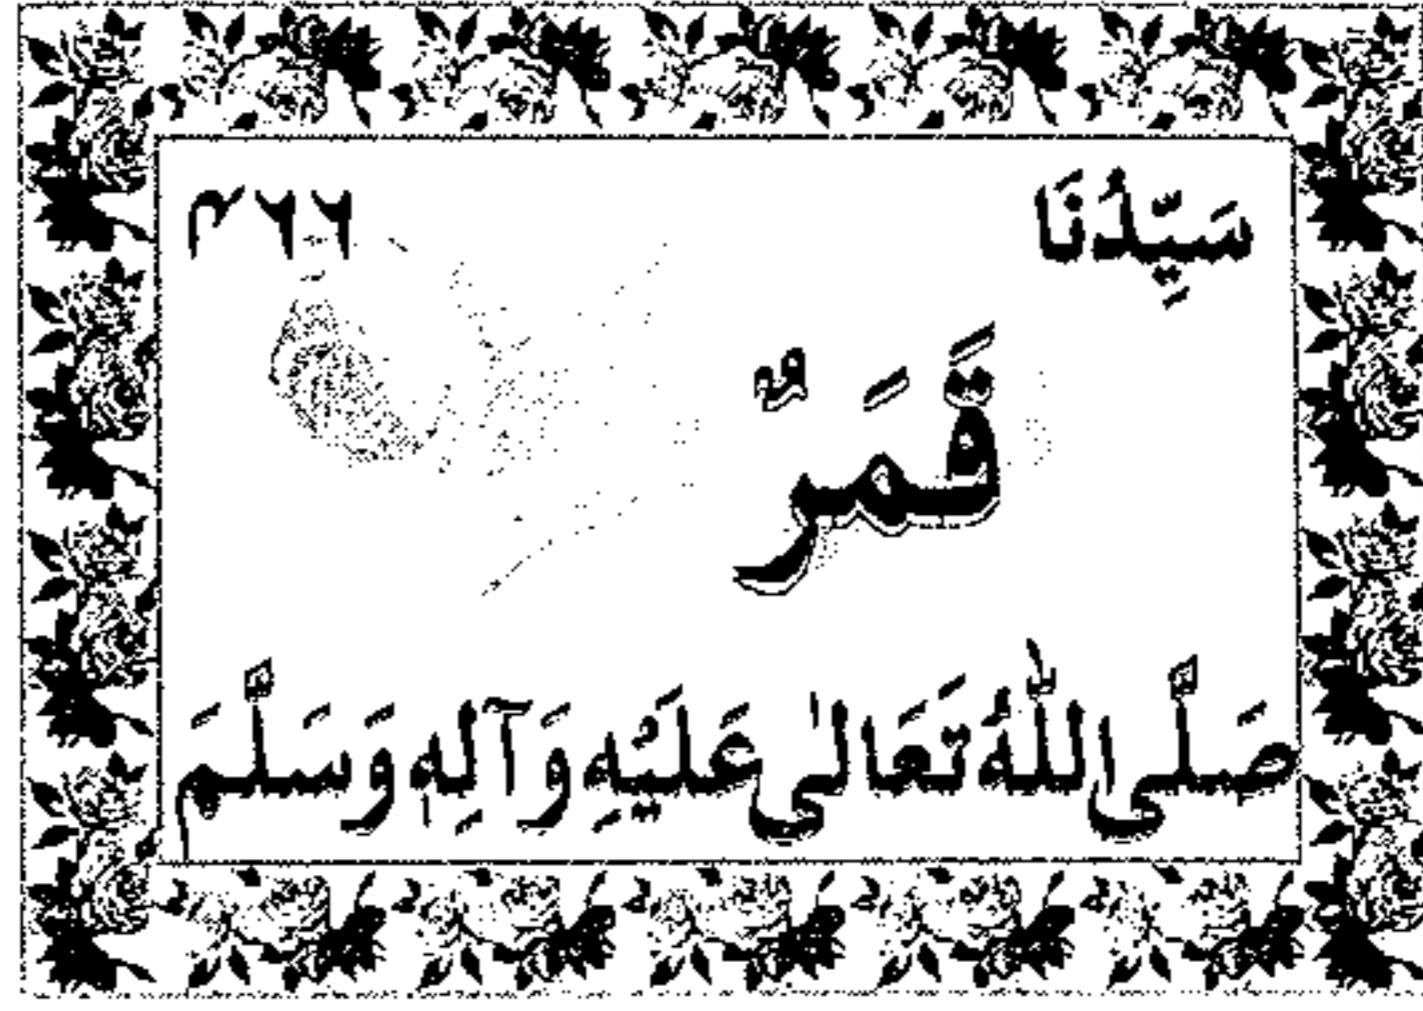 سَیِّدُنَا ٣٦٦
قَمَرٌ
صَلَّی اللّٰهُ تَعَالٰی عَلَیْهِ وَآلِهٖ وَسَلَّمَ